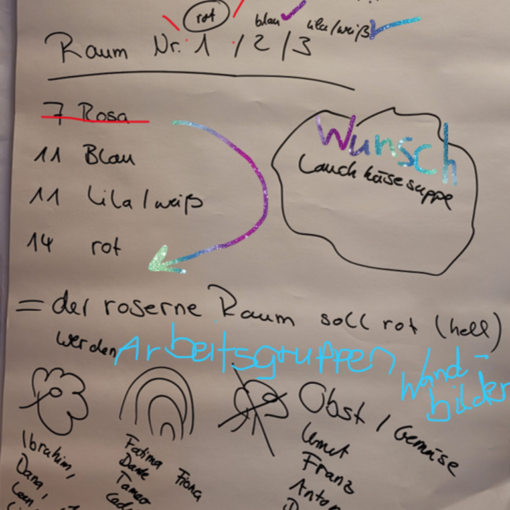 rot
blau
lila/weiß
Raum Nr. 1 / 2 / 3
7 Rosa
11 Blau
11 Lila/weiß
14 rot
Wunsch
Lauchkäsesuppe
= der roserne Raum soll rot (hell)
werden
Arbeitsgruppen Wand-
bilder
Obst / Gemüse
Ibrahim,
Dana,
Leen,
Fatima
Franz
Anton